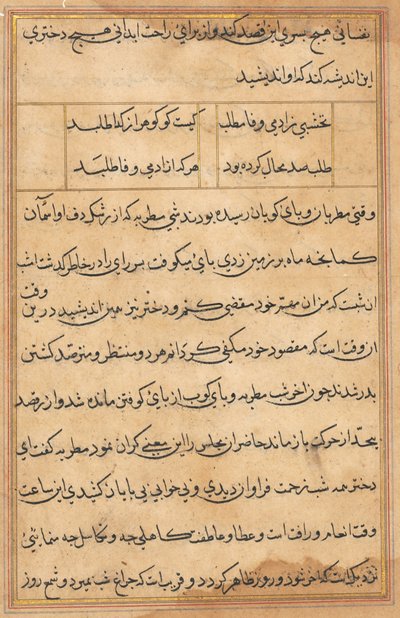 نفسانی هیچ پسری این قصد کند و از برای راحت ابدانی هیچ دختری
این اندیشه کند که او اندیشید
نخشبی زادمی وفا مطلب کیست کو گوهر از کدا طلبد
طلب صد محال کرده بود هر که از ادمی وفا طلبد
وقتی مطربان و پای کوبان رسیده بودند شبی مطربه که از رشک دف او آسمان
کمانچه ماه بر زمین زدی پای میکوفت پسر رای را در خاطر گذشت امشب
ان شبست که من ان مهتر خود مقضی کنم و دختر نیز همین اندیشید درین وقت
ان وقت است که مقصود خود مکفی گردانم هر دو منتظر و مترصد گشتن
پدر شدند چون اخر شب مطربه و پای کوب از پای کوفتن مانده شد و از رقص
بیحد از حرکت باز ماند حاضران مجلس را این معنی گران نمود مطربه گفت ای
دختر همه شب زحمت فراوان دیدی و بیخوابی بی پایان کشیدی این ساعت
وقت انعام و رافت است و عطا و عاطفت کاهلی چه و تکاسل چه می‌نمائی
نزدیک است که اخر شود و روز ظاهر گردد و قریب است که چراغ شب بمیرد و شمع روز